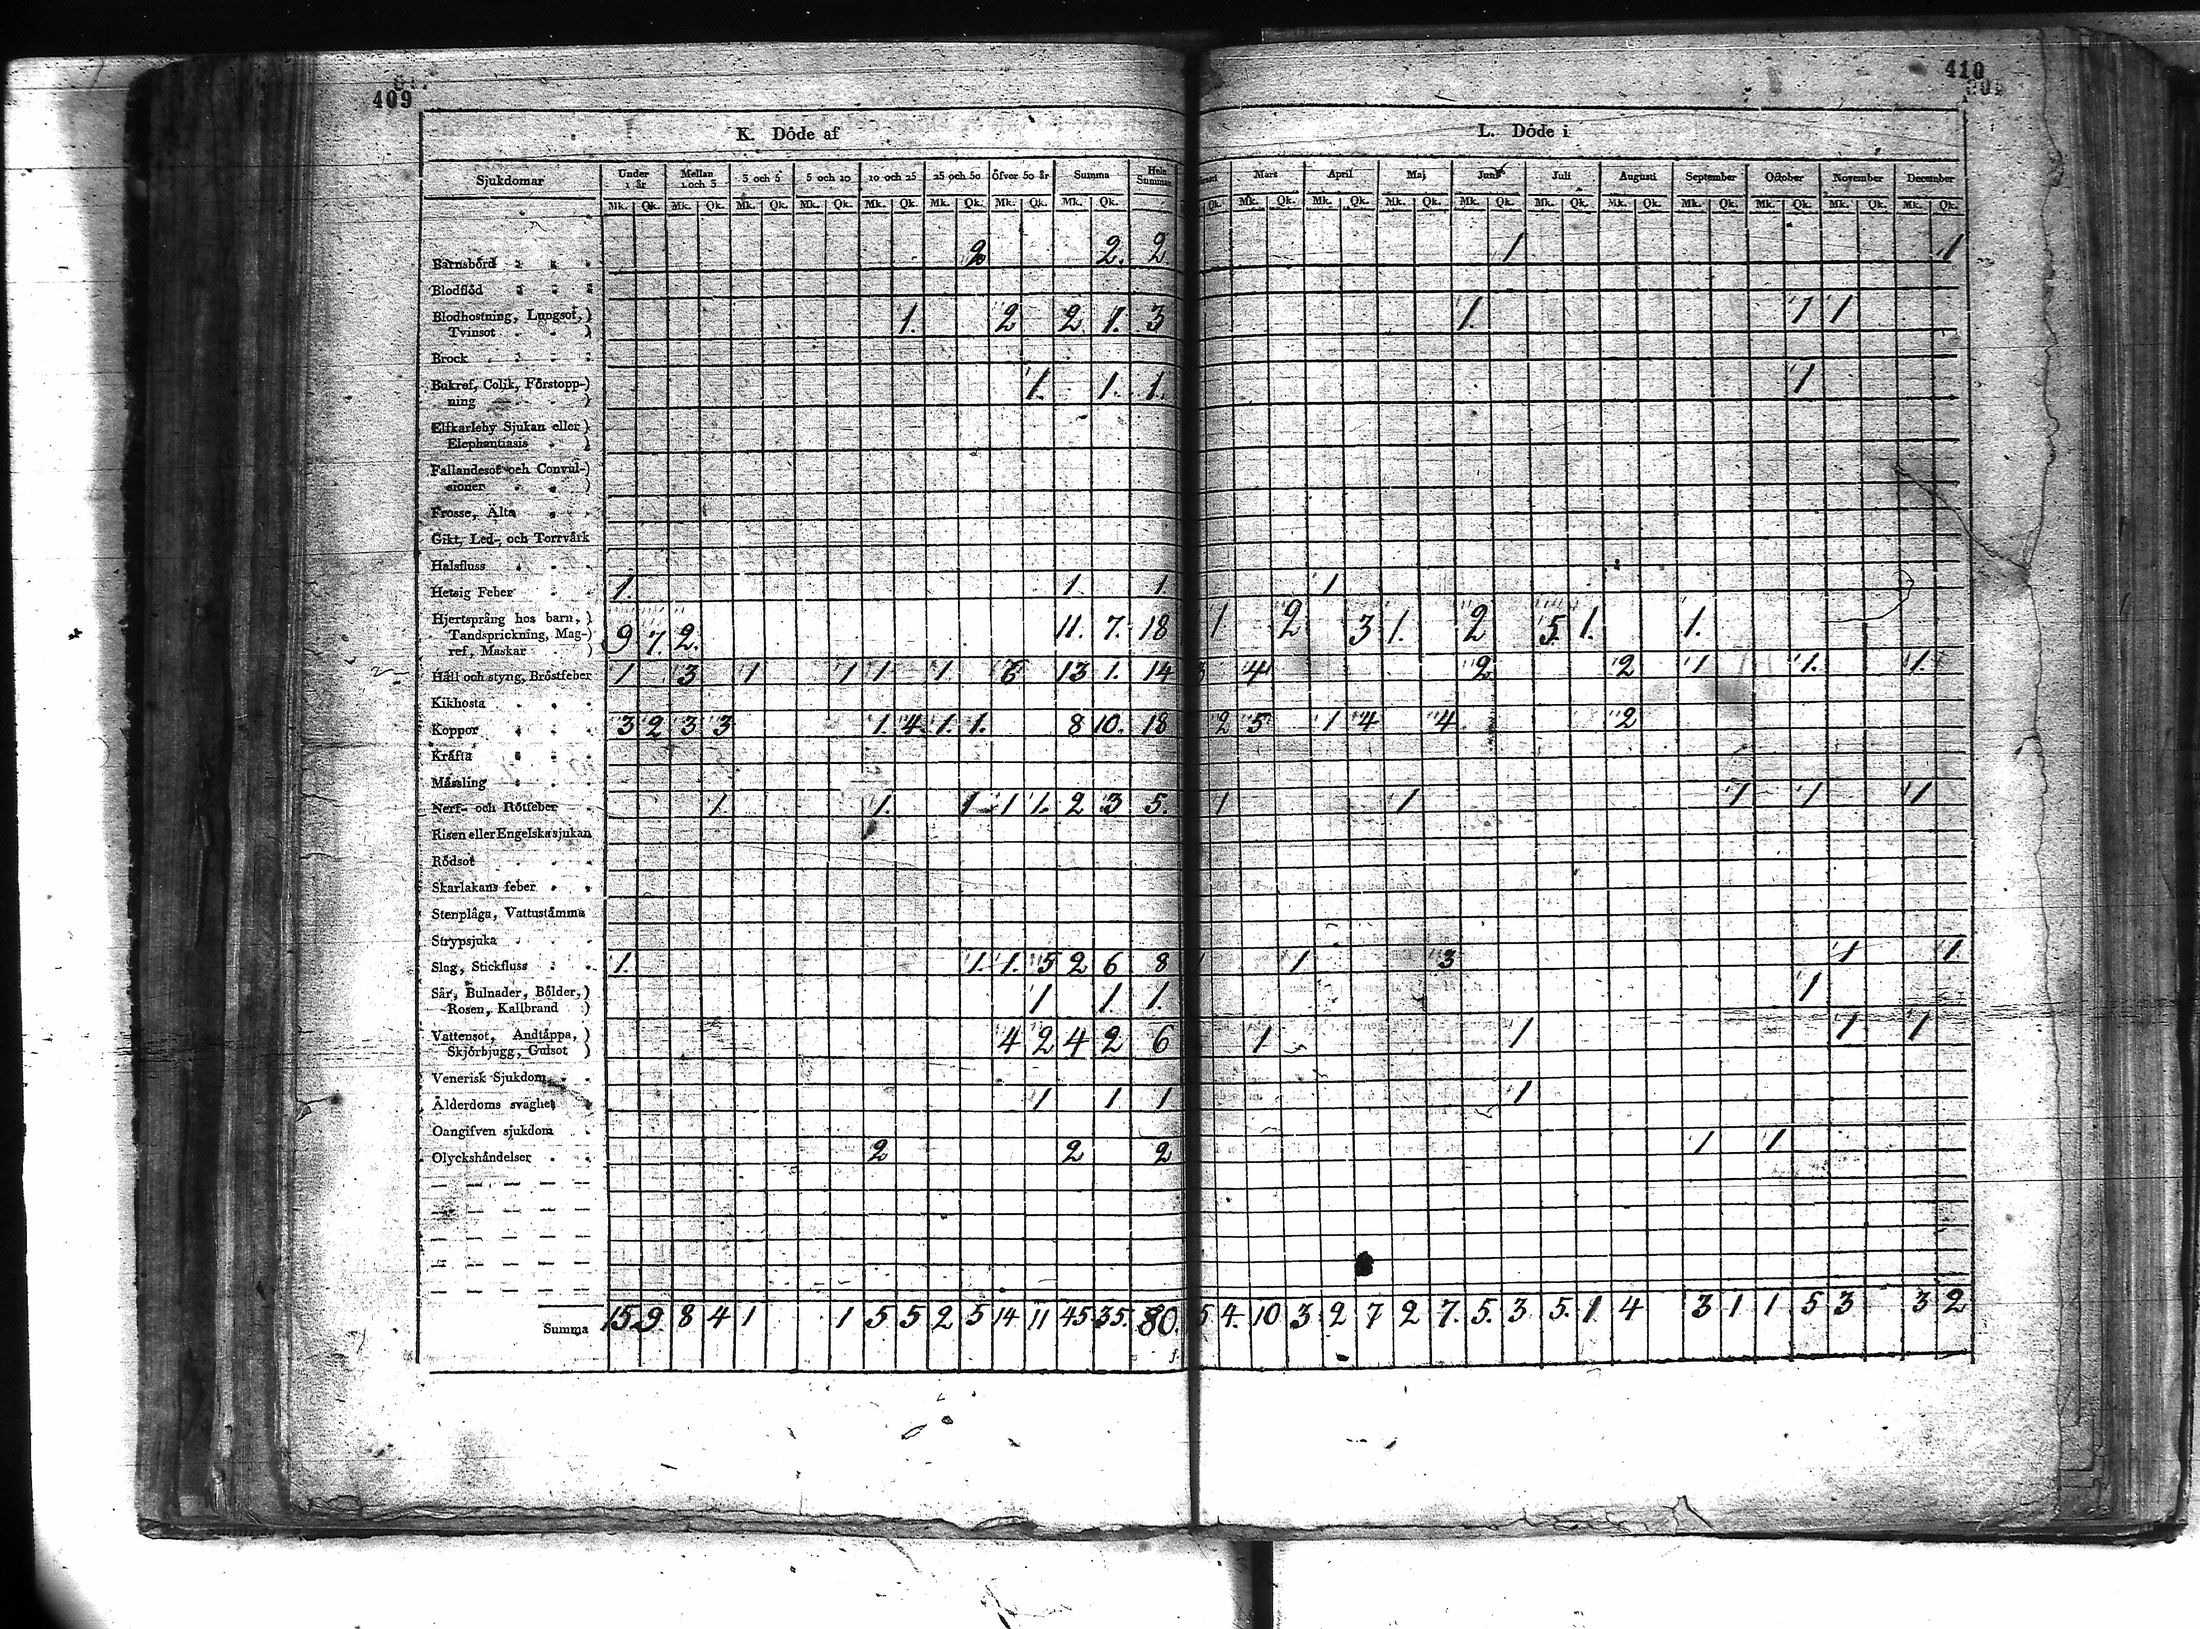 409
410
K. Döde af
L. Döde i
Sjukdomar Under 1 år Mellan 1 och 3 3 och 5 5 och 10 10 och 25 25 och 50 Öfver 50 år Summa Hela Summan Mars April Maj Juni Juli Augusti September October November December
Mk. Qk. Mk. Qk. Mk. Qk. Mk. Qk. Mk. Qk. Mk. Qk. Mk. Qk. Mk. Qk. Qk. Mk. Qk. Mk. Qk. Mk. Qk. Mk. Qk. Mk. Qk. Mk. Qk. Mk. Qk. Mk. Qk. Mk. Qk. Mk. Qk.
Barnsbörd 2 2. 2 1 1
Blodflöd
Blodhostning, Lungsot,)
Tvinsot ) 1. 2 2 1. 3 1. 1 1
Brock
Bukref, Colik, Förstopp-)
ning ) 1. 1. 1. 1
Elfkarleby Sjukan eller)
Elephantiasis )
Fallandesot och Convul-)
sioner )
Frosse, Älta
Gikt, Led-, och Torrvärk
Halsfluss
Hetsig Feber 1. 1. 1 1
Hjertsprång hos barn,)
Tandsprickning, Mag-)
ref, Maskar ) 9 7. 2. 11. 7. 18 1 2 3 1. 2 5. 1. 1.
Håll och styng, Bröstfeber 1 3 1 1 1 1 6 13 1. 14 3 4 2 2 1 1. 1.
Kikhosta
Koppor 3 2 3 3 1. 4. 1. 1. 8 10. 18 2 5 1 4 4 2
Kräfta
Mässling
Nerf- och Rötfeber 1. 1. 1 1 1. 2 3 5. 1 1 1 1 1
Risen eller Engelska sjukan
Rödsot
Skarlakans feber
Stenplåga, Vattustämma
Strypsjuka
Slag, Stickfluss 1. 1. 1. 5 2 6 8 1 3 1 1
Sår, Bulnader, Bölder,)
Rosen, Kallbrand ) 1 1. 1. 1
Vattensot, Andtäppa,)
Skjörbjugg, Gulsot ) 4 2 4 2 6 1 1 1 1
Venerisk Sjukdom
Ålderdoms svaghet 1 1 1 1
Oangifven sjukdom
Olyckshändelser 2 2 2 1 1
Summa 15. 9. 8 4 1 1 5 5 2 5 14 11 45 35. 80. 5 4. 10 3 2 7 2 7. 5. 3 5. 1 4 3 1 1 5 3 3 2